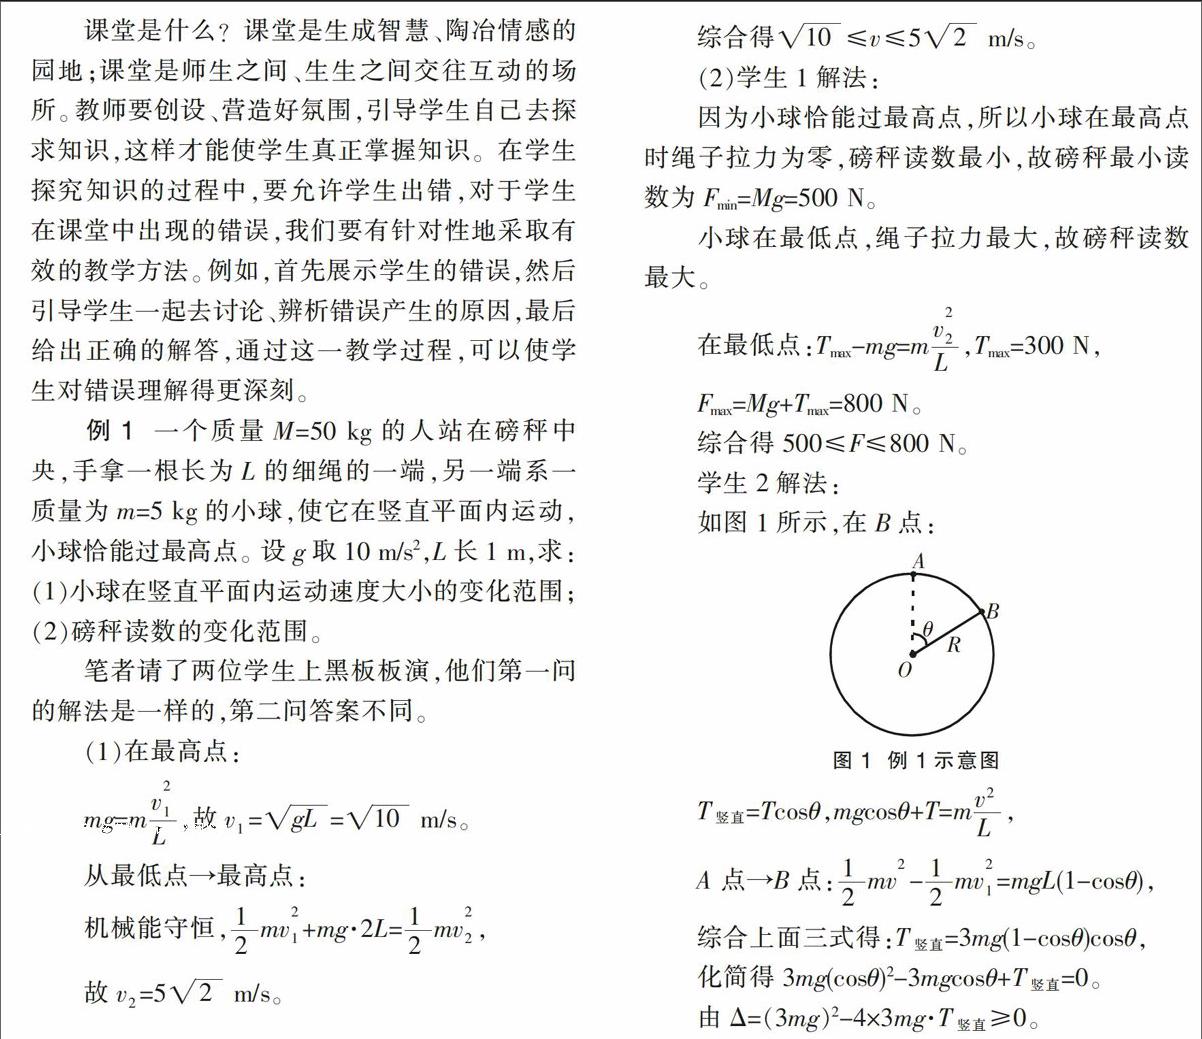 课堂是什么？课堂是生成智慧、陶冶情感的
园地；课堂是师生之间、生生之间交往互动的场
所。教师要创设、营造好氛围，引导学生自己去探
求知识，这样才能使学生真正掌握知识。在学生
探究知识的过程中，要允许学生出错，对于学生
在课堂中出现的错误，我们要有针对性地采取有
效的教学方法。例如，首先展示学生的错误，然后
引导学生一起去讨论、辨析错误产生的原因，最后
给出正确的解答，通过这一教学过程，可以使学
生对错误理解得更深刻。
例 1 一个质量 M=50 kg 的人站在磅秤中
央，手拿一根长为 L 的细绳的一端，另一端系一
质量为 m=5 kg 的小球，使它在竖直平面内运动，
小球恰能过最高点。设 g 取 10 m/s²，L 长 1 m，求：
(1)小球在竖直平面内运动速度大小的变化范围；
(2)磅秤读数的变化范围。
笔者请了两位学生上黑板板演，他们第一问
的解法是一样的，第二问答案不同。
(1)在最高点：
mg=m v₁²/L，故 v₁=√gL=√10 m/s。
从最低点→最高点：
机械能守恒，1/2 mv₁²+mg·2L=1/2 mv₂²，
故 v₂=5√2 m/s。
综合得√10 ≤v≤5√2 m/s。
(2)学生 1 解法：
因为小球恰能过最高点，所以小球在最高点
时绳子拉力为零，磅秤读数最小，故磅秤最小读
数为 Fmin=Mg=500 N。
小球在最低点，绳子拉力最大，故磅秤读数
最大。
在最低点：Tmax-mg=m v₂²/L，Tmax=300 N，
Fmax=Mg+Tmax=800 N。
综合得 500≤F≤800 N。
学生 2 解法：
如图 1 所示，在 B 点：
A
B
θ
R
O
图 1 例 1 示意图
T竖直=Tcosθ，mgcosθ+T=m v²/L，
A 点→B 点：1/2 mv²-1/2 mv₁²=mgL(1-cosθ)，
综合上面三式得：T竖直=3mg(1-cosθ)cosθ，
化简得 3mg(cosθ)²-3mgcosθ+T竖直=0。
由 Δ=(3mg)²-4×3mg·T竖直≥0。